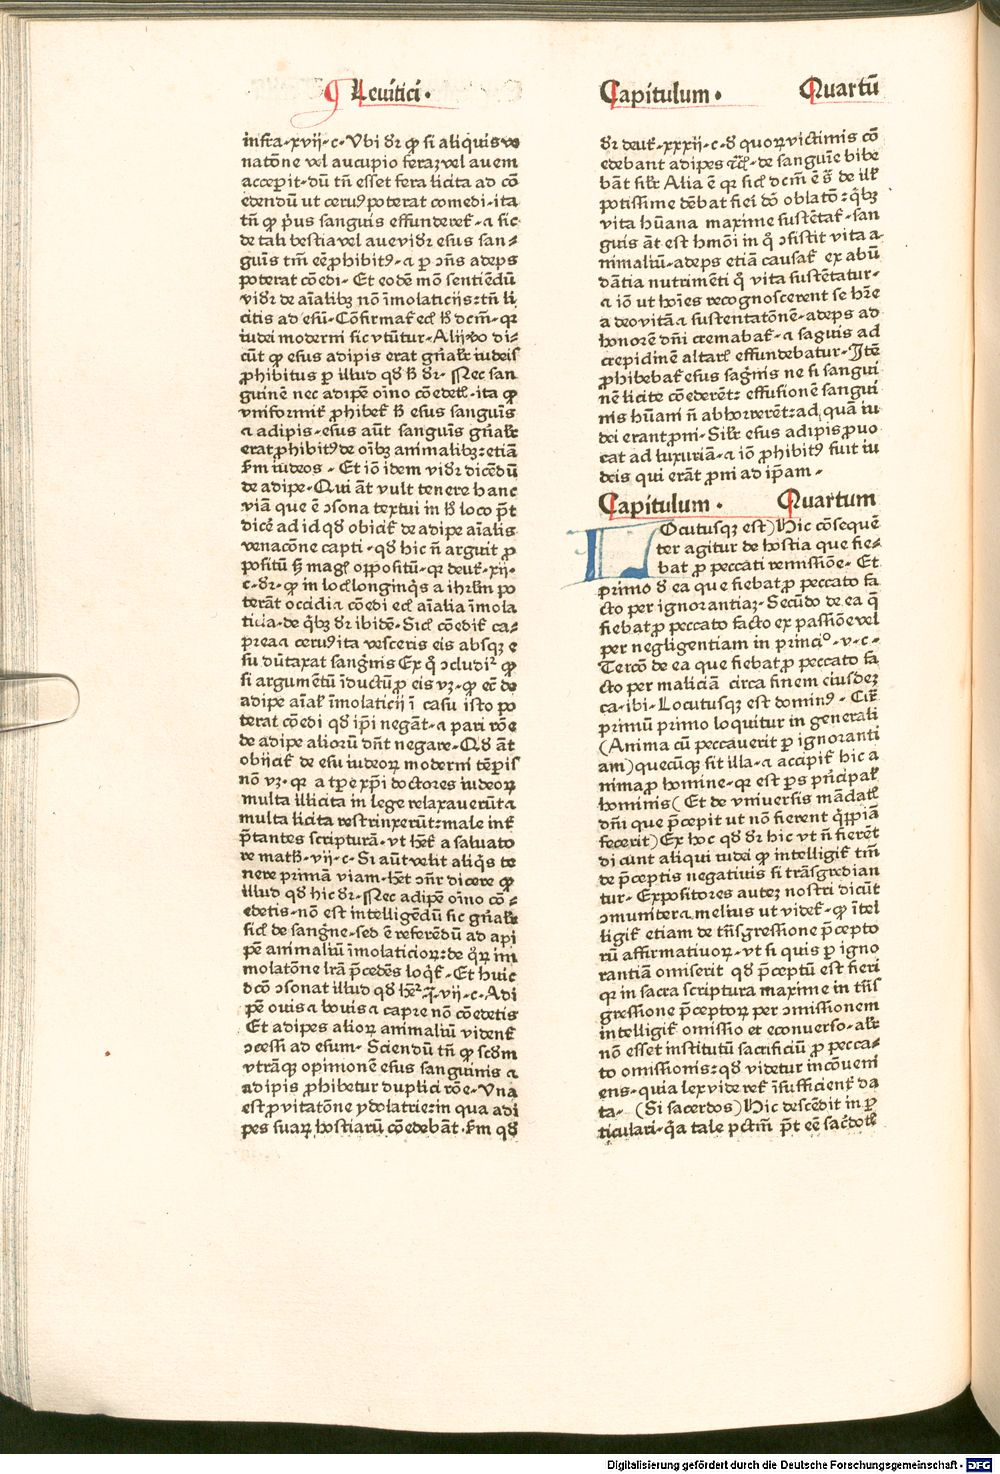 Leuitici.
Capitulum. Quartũ
infra.xvij.c. Vbi dr̃ ꝙ si aliquis ve
natõne vel aucupio feraꝫ vel auem
acceperit.dũ tñ esset fera licita ad cõ
edendũ ut ceruꝰ poterat comedi.ita
tñ ꝙ pͥus sanguis effunderet̃.⁊ sic
de tali bestia vel aue vidr̃ esus san⸗
guis tm̃ eẽ ꝓhibitꝰ.⁊ ꝑ ↄñs adeps
poterat cõedi. Et eodẽ mõ sentiẽdũ
vidr̃ de aĩalibꝫ nõ ĩmolaticijs:tñ li
citis ad esũ.Cõfirmat̃ ecĩ h̃ dcm̃.qꝛ
iudei moderni sic vtũtur.Alij ꝟo di⸗
cũt ꝙ esus adipis erat gñalr̃ iudeis
ꝓhibitus ꝑ illud qd̃ h̃ dr̃. Nec san
guinẽ nec adipẽ oĩno cõedet̃.ita ꝙ
vniformit̃ ꝓhibet̃ h̃ esus sanguis
⁊ adipis.esus aũt sanguis gñalr̃
erat ꝓhibitꝰ de oĩbꝫ animalibꝫ:etiã
ẜm iudeos. Et iõ idem vidr̃ dicẽdũ
de adipe.Qui ãt vult tenere hanc
viã que ẽ ↄsona textui in h̃ loco põt
dicẽ ad id qd̃ obicit̃ de adipe aĩalis
venacõne capti.qd̃ hic ñ arguit ꝓ
positũ sꝫ magͥ oppositũ.qꝛ deut̃.xij.
c.dr̃.ꝙ in locͥ longinqͥs a ihrl̃m po
terãt occidi ⁊ cõedi ecĩ aĩalia ĩmola
ticia.de qͥbꝫ dr̃ ibidẽ. Sicͥ cõedit̃ ca⸗
prea ⁊ ceruꝰ ita vesceris eis absqꝫ e
su dũtaxat sangͥnis Ex qͦ ↄcludiͬ ꝙ
si argumẽtũ ĩductũ ꝓ eis vꝫ.ꝙ ec̃ de
adipe aĩal̃ ĩmolaticij ĩ casu isto po
terat cõedi qd̃ ip̃i negãt.⁊ pari rõe
de adipe aliorũ dñt negare.Qd̃ ãt
obijcit̃ de esu iudeoꝝ moderni tẽpis
nõ vꝫ.qꝛ a tꝑe xp̃i doctores iudeoꝝ
multa illicita in lege relaxauerũt ⁊
multa licita restrinxerũt:male int̃
p̃tantes scripturã.vt hẽt̃ a saluato
re math̃.vij.c. Si aũt velit aliqͥs te
nere primã viam.hẽt ↄñr dicere ꝙ
illud qd̃ hic dr̃.Nec adipẽ oĩno cõ⸗
edetis.nõ est intelligẽdũ sic gñalr̃
sicͥ de sangͥne.sed ẽ referẽdũ ad api
pẽ animaliũ ĩmolaticioꝝ:de qͥꝝ im
molatõne lr̃a p̃cedẽs loqͥt̃. Et huic
dcõ ↄsonat illud qd̃ hr̃ ĩ.vij.c.Adi
pẽ ouis ⁊ bouis ⁊ capre nõ cõedetis
Et adipes alioꝝ animaliũ vident̃
ↄcessi ad esum. Sciendũ tñ ꝙ scd̃m
vtrãqꝫ opinionẽ esus sanguinis ⁊
adipis ꝓhibetur duplici rõe.Vna
est ꝓ vitatõne ydolatrie:in qua adi
pes suaꝝ hostiarũ cõedebãt.ẜm qd̃
dr̃ deut̃.xxxij.c.d̃ quoꝝ victimis cõ
edebant adipes ⁊cͣ.de sanguĩe bibe
bãt silr̃ Alia ẽ qꝛ sicͥ dcm̃ ẽ s̃ de ill̃
potissime dẽbat fieri dõ oblatõ:qͥbꝫ
vita hũana maxime sustẽtat̃.san
guis ãt est hmõi in qͦ ↄsistit vita a⸗
nimaliũ.adeps etiã causat̃ ex abũ
dãtia nutrimẽti qͦ vita sustẽtatur.
⁊ iõ ut hoĩes recognoscerent se hr̃e
a deo vitã ⁊ sustentatõnẽ.adeps ad
honorẽ dñi cremabat̃.⁊ sãguis ad
crepidinẽ altarͥ effundebatur.Itẽ
ꝓhibebat̃ esus sagͥnis ne si sangui
nẽ licite cõederẽt: effusionẽ sangui
nis hũani ñ abhorrerẽt:ad quã iu
dei erant ꝓni.Silr̃ esus adipis ꝓuo
cat ad luxuriã.⁊ iõ ꝓhibitꝰ fuit iu
deis qui erãt ꝓni ad ip̃am.
Capitulum. Quartum
LOcutusqꝫ est) Hic cõsequẽ
ter agitur de hostia que fie⸗
bat ꝓ peccati remissiõe. Et
primo d̃ ea que fiebat ꝓ peccato fa
cto per ignorantiaꝫ.Secũdo de ea q̃
fiebat ꝓ peccato facto ex passiõe vel
per negligentiam in principͦ.v.c.
Tercõ de ea que fiebat ꝓ peccato fa
cto per maliciã circa finem eiusdeꝫ
ca.ibi.Locutusqꝫ est dominꝰ. Cir̃
primũ primo loquitur in generali
(Anima cũ peccauerit ꝑ ignoranti
am) quecũqꝫ sit illa.⁊ accipit̃ hic a
nima ꝓ homine.qꝛ est ꝑs pͥncipal̃
hominis( Et de vniuersis mãdatͥ
dñi que p̃cepit ut nõ fierent qͥppiã
fecerit) Ex hoc qd̃ dr̃ hic vt ñ fierẽt
dicunt aliqui iudei ꝙ intelligit̃ tm̃
de p̃ceptis negatiuis si trãsgredian
tur. Expositores auteꝫ nostri dicũt
ↄmuniter ⁊ melius ut videt̃.ꝙ ĩtel
ligit̃ etiam de trñsgressione p̃cepto
rũ affirmatiuoꝝ.vt si quis ꝑ igno
rantiã omiserit qd̃ p̃ceptũ est fieri
qꝛ in sacra scriptura maxime in trñs
gressione p̃ceptoꝝ per ↄmissionem
intelligit̃ omissio et econuerso.alr̃
nõ esset institutũ sacrificiũ ꝓ pecca⸗
to omissionis:qd̃ videtur incõueni
ens.quia lex videret̃ ĩsufficient̃ da
ta. (Si sacerdos) Hic descẽdit in ꝑ
ticulari.qͥa tale pctm̃ põt eẽ sac̃dotͥ